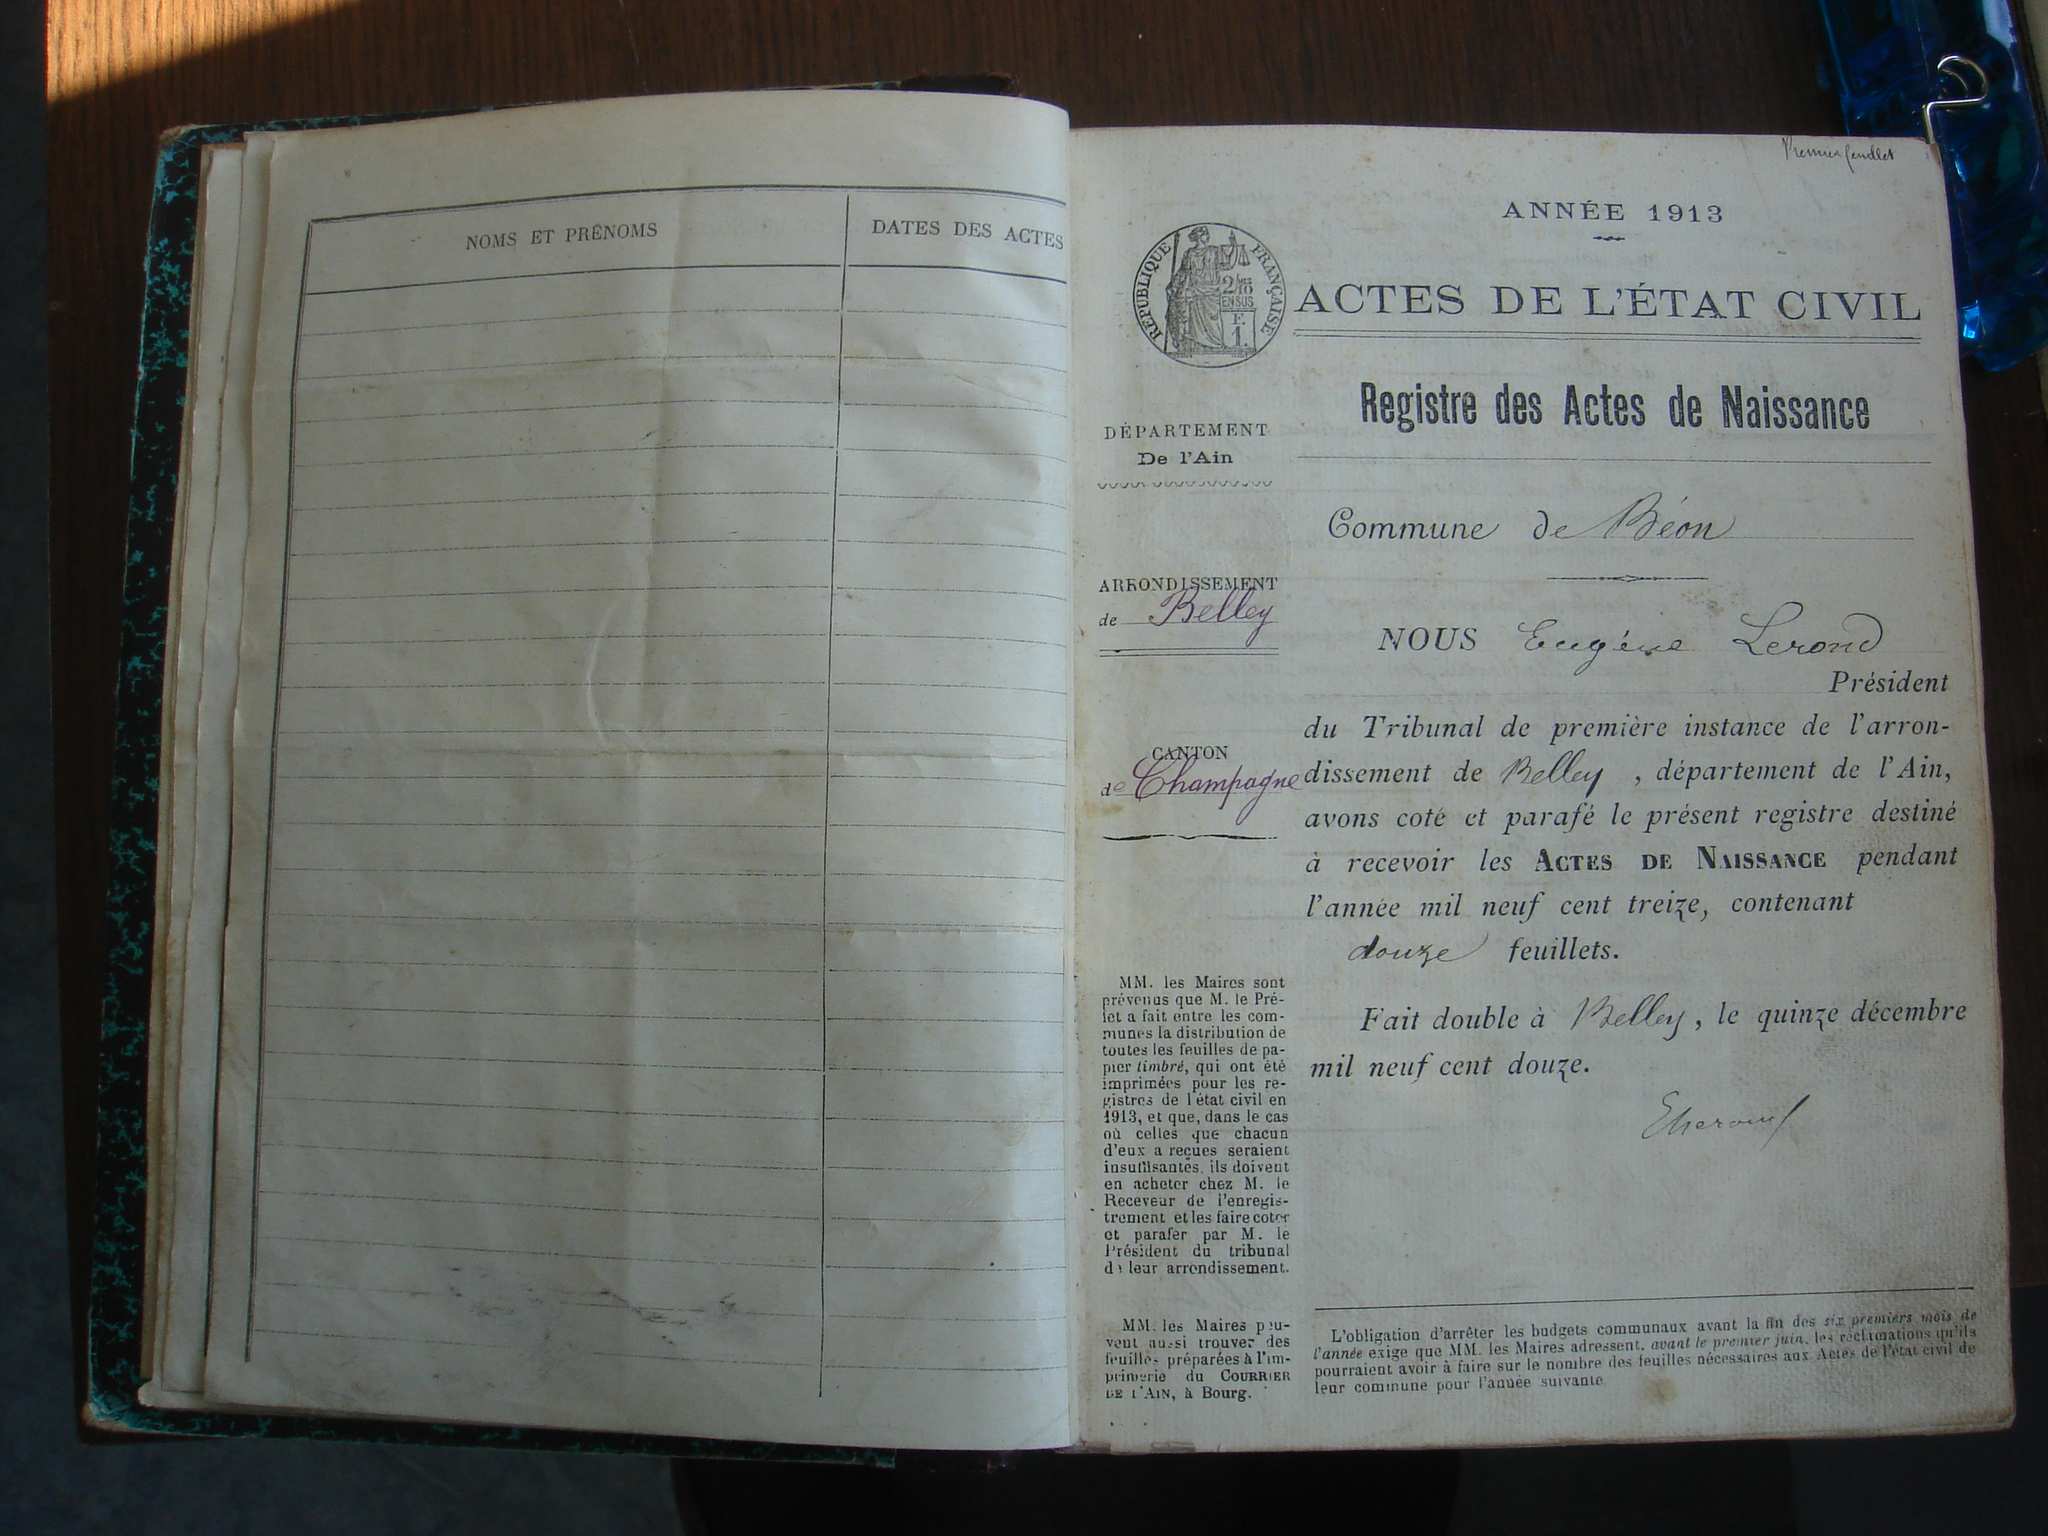 NOMS ET PRÉNOMS
DATES DES ACTES
Premier feuillet
ANNÉE 1913
RÉPUBLIQUE FRANÇAISE
2/10
EN SUS
F.
1.
ACTES DE L'ÉTAT CIVIL
Registre des Actes de Naissance
DÉPARTEMENT
De l'Ain
Commune de Béon
ARRONDISSEMENT
de Belley
CANTON
de Champagne
NOUS Eugène Lerond
Président
du Tribunal de première instance de l'arron-
dissement de Belley, département de l'Ain,
avons coté et parafé le présent registre destiné
à recevoir les ACTES DE NAISSANCE pendant
l'année mil neuf cent treize, contenant
douze feuillets.
Fait double à Belley, le quinze décembre
mil neuf cent douze.
MM. les Maires sont
prévenus que M. le Pré-
fet a fait entre les com-
munes la distribution de
toutes les feuilles de pa-
pier timbré, qui ont été
imprimées pour les re-
gistres de l'état civil en
1913, et que, dans le cas
où celles que chacun
d'eux a reçues seraient
insuffisantes, ils doivent
en acheter chez M. le
Receveur de l'enregis-
trement et les faire coter
et parafer par M. le
Président du tribunal
de leur arrondissement.
MM. les Maires peu-
vent aussi trouver des
feuilles préparées à l'im-
primerie du COURRIER
DE L'AIN, à Bourg.
L'obligation d'arrêter les budgets communaux avant la fin des six premiers mois de
l'année exige que MM. les Maires adressent, avant le premier juin, les réclamations qu'ils
pourraient avoir à faire sur le nombre des feuilles nécessaires aux Actes de l'état civil de
leur commune pour l'année suivante.